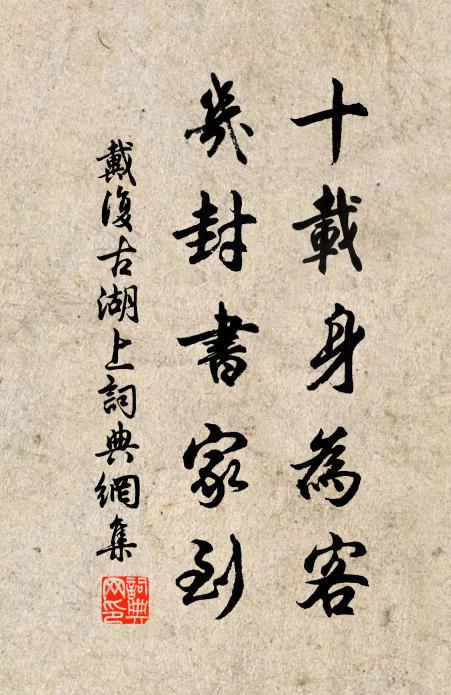 十載身為客
幾封書家到
戴復古湖上詞典網集
詞典網印